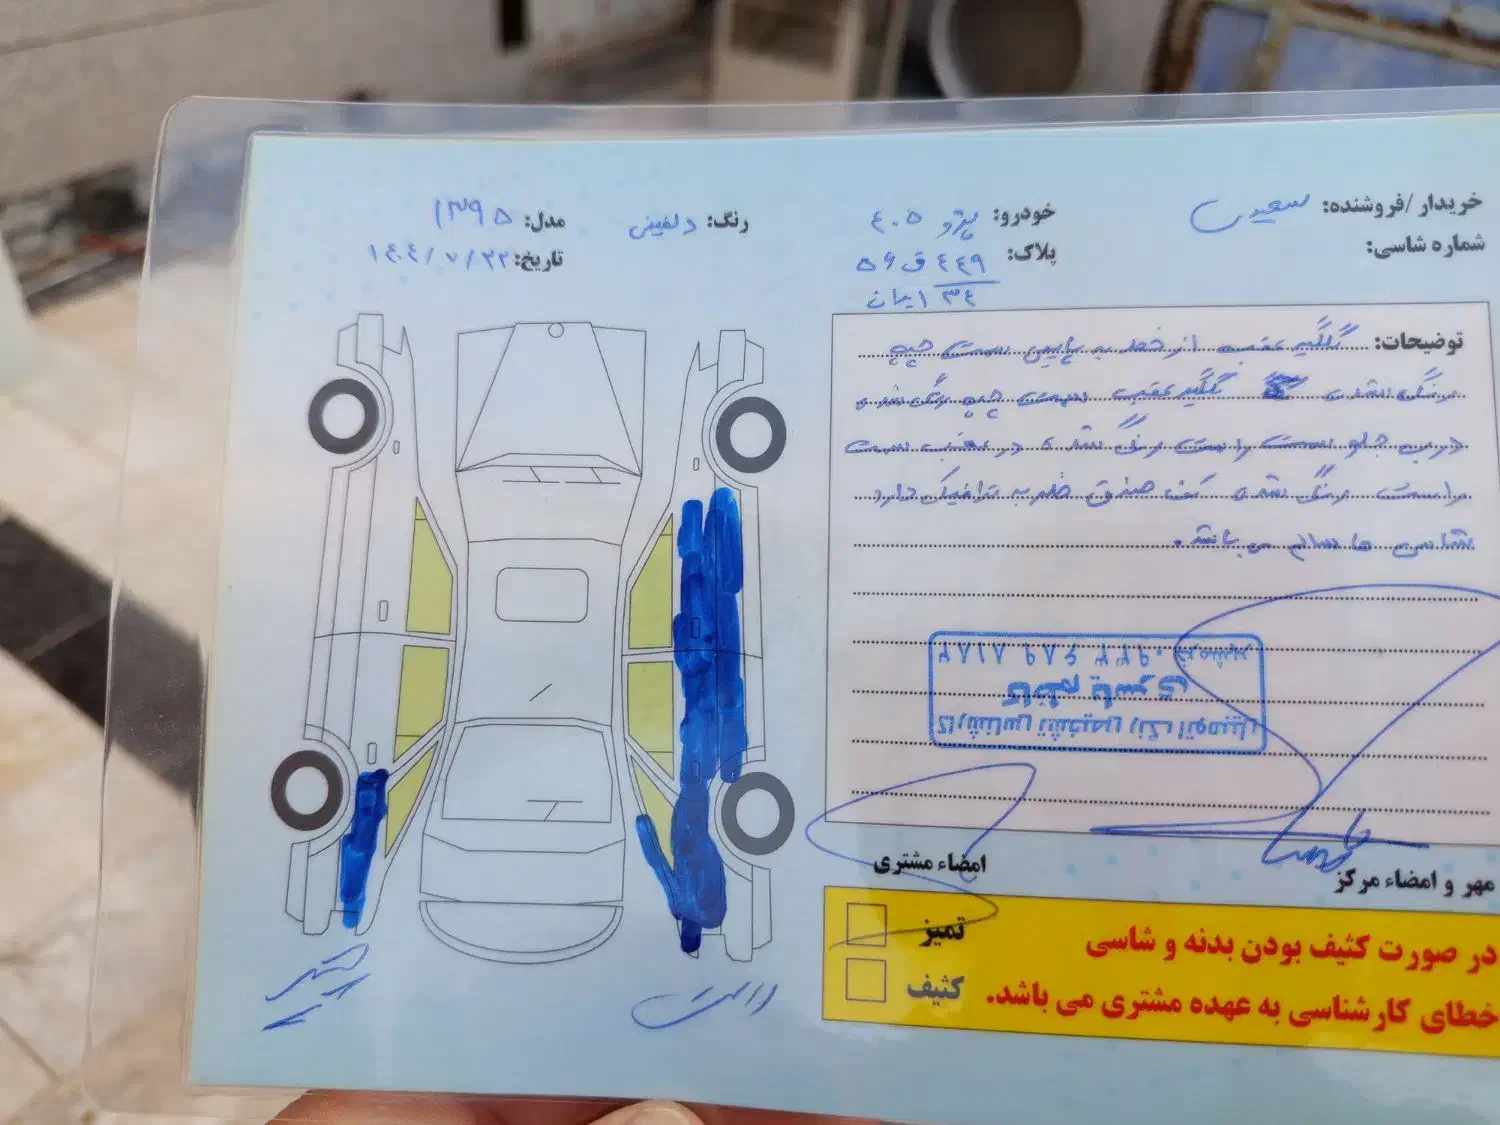 خریدار /فروشنده: سعیدی
خودرو: پژو ۴۰۵
رنگ: دلفینی
مدل: ۱۳۹۵
شماره شاسی:
پلاک: ۴۴۹ ق ۵۶
ایران ۳۴
تاریخ: ۱۴۰۴/۷/۲۲
توضیحات: گلگیر عقب از خط به پایین سمت چپ
رنگ شده گلگیر عقب سمت چپ رنگ شده
درب جلو سمت راست رنگ شده درب عقب سمت
راست رنگ شده کف صندوق ضربه ترافیک دارد
شاسی ها سالم می باشد.
کارشناس تشخیص رنگ اتومبیل
کاظم یاسری
خرمشهر
مهر و امضاء مرکز
امضاء مشتری
در صورت کثیف بودن بدنه و شاسی
خطای کارشناسی به عهده مشتری می باشد.
تمیز
کثیف
راست
چپ